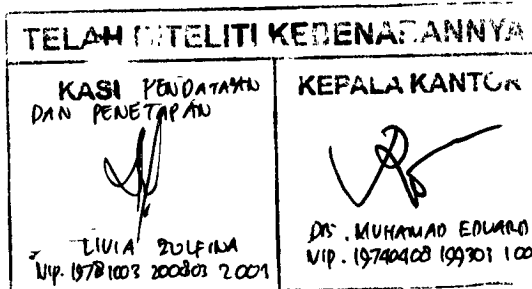 TELAH DITELITI KEBENARANNYA
KASI PENDATAAN
DAN PENETAPAN
LIVIA ZULFINA
NIP. 19781003 200803 2001
KEPALA KANTOR
DRS. MUHAMAD EDUARD
NIP. 19740408 199303 1 00